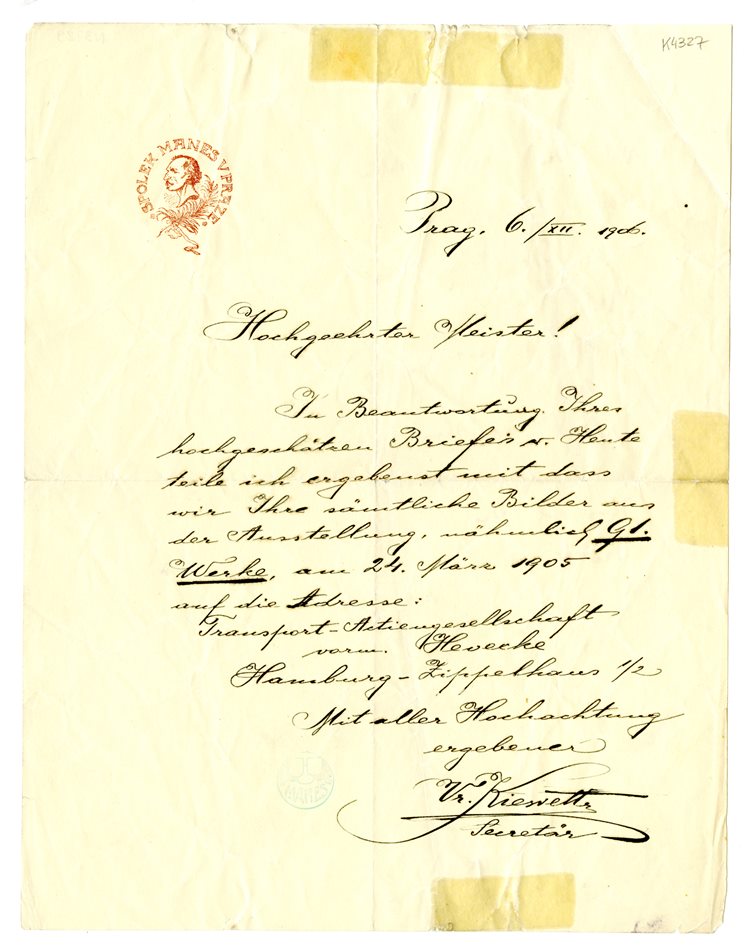 K4327
SPOLEK MANES V PRAZE
Prag, 6./XII. 1906.
Hochgeehrter Meister!
In Beantwortung Ihres
hochgeschätzen Briefes v. Heute
teile ich ergebenst mit dass
wir Ihre sämtliche Bilder aus
der Ausstellung, nähmlich 91.
Werke, am 24. März 1905
auf die Adresse:
Transport-Actiengesellschaft
vorm. Hevecke
Hamburg - Zippelhaus 1/2
Mit aller Hochachtung
ergebener
MANES
Vr. Kiewettr
Secretär